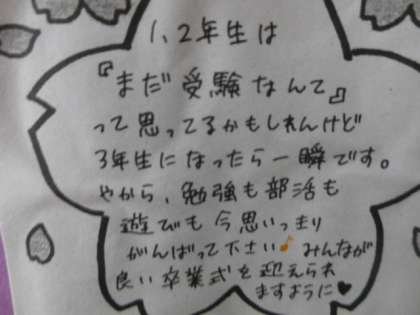 1、2年生は
『まだ受験なんて』
って思ってるかもしれんけど
3年生になったら一瞬です。
やから、勉強も部活も
遊びも今思いっきり
がんばって下さい♪みんなが
良い卒業式を迎えられ
ますように♥